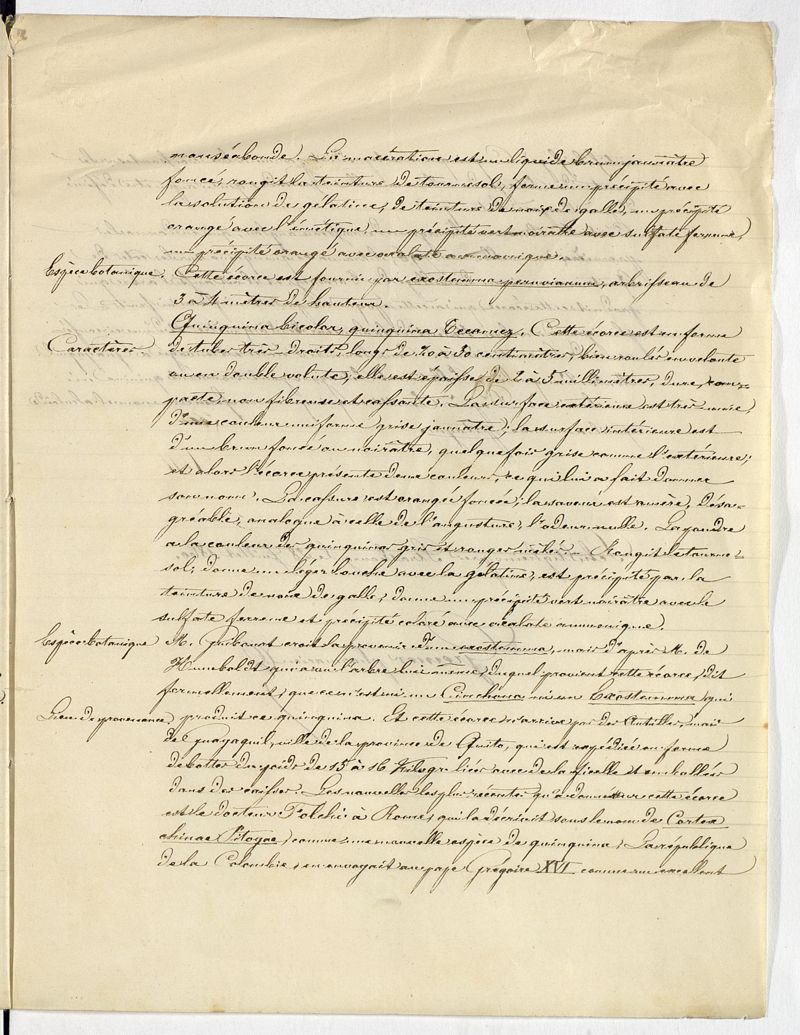 nauséabonde. La macération est un liquide brun jaunâtre
foncé, rougit la teinture de tournesol, forme un précipité avec
la solution de gélatine, de teinture de noix de galle, un précipité
orangé avec l'émétique, un précipité vert noirâtre avec sulfate ferreux,
un précipité orangé avec oxalate ammonique.
Espèce botanique. Cette écorce est fournie par exostemma peruvianum, arbrisseau de
3 à 4 mètres de hauteur.
Quinquina bicolor, quinquina Tecamez. Cette écorce est en forme
Caractères de tubes très-droits, longs de 20 à 30 centimètres, bien roulés en volute
ou en double volute; elle est épaisse de 2 à 3 millimètres, dure, com-
pacte, non fibreuse et cassante. La surface extérieure est très unie,
d'une couleur uniforme grise jaunâtre; la surface intérieure est
d'un brun foncé ou noirâtre, quelquefois grise comme l'extérieure;
et alors l'écorce présente deux couleurs, ce qui lui a fait donner
son nom. La cassure est orangée foncée; la saveur est amère, désa-
gréable, analogue à celle de l'angusture, l'odeur nulle. La poudre
a la couleur des quinquinas gris et rouges mêlés. Rougit le tourne-
sol, donne un léger louche avec la gélatine, est précipité par la
teinture de noix de galle, donne un précipité vert noirâtre avec le
sulfate ferreux et précipité coloré avec oxalate ammonique.
Espèce botanique M. Guibourt croit la provenir d'un exostemma, mais d'après M. de
Humboldt qui a vu l'arbre lui même, duquel provient cette écorce, dit
formellement, que ce n'est ni un Cinchona ni un Exostemma qui
Lieu de provenance, produit ce quinquina. Et cette écorce n'arrive pas des Antilles, mais
de Guayaquil, ville de la province de Quito, qui est expédiée en forme
de bottes du poids de 15 à 16 Kilogr. liées avec de la ficelle et emballées
dans des caisses. Les nouvelles les plus récentes qu'a données sur cette écorce
est le docteur Folchi à Rome, qui la décrivit sous le nom de Cortex
chinae Pitoyae, comme une nouvelle espèce de quinquina. La république
de la Colombie, en envoyait au pape Grégoire XVI comme un excellent